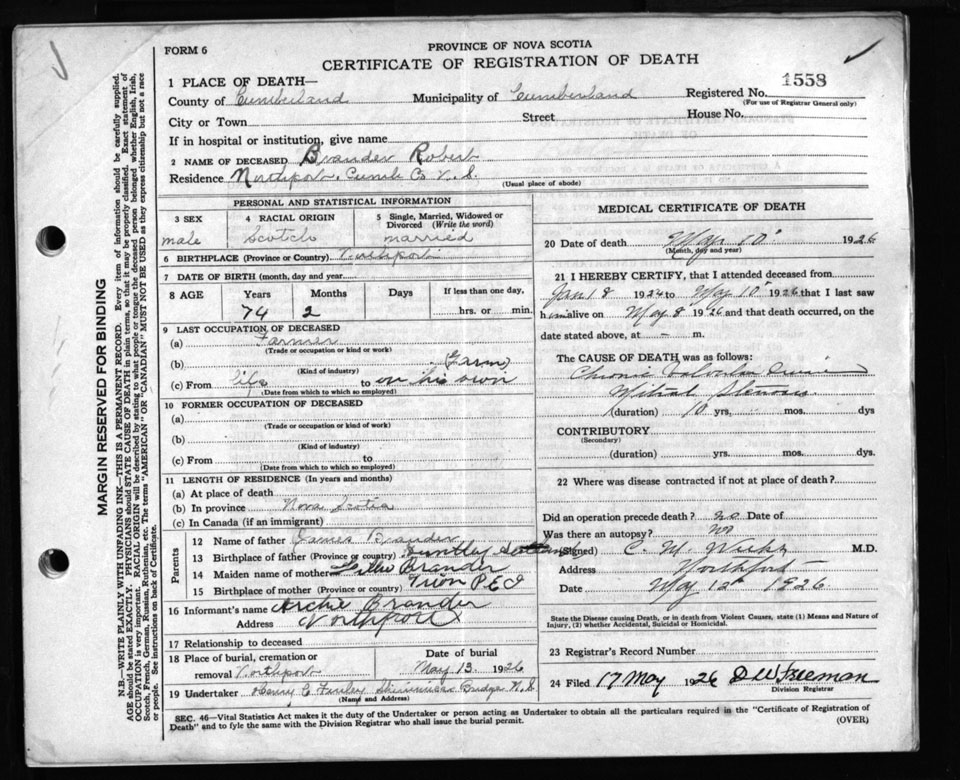 FORM 6
PROVINCE OF NOVA SCOTIA
CERTIFICATE OF REGISTRATION OF DEATH
1 PLACE OF DEATH—
County of Cumberland Municipality of Cumberland Registered No. 1558
(For use of Registrar General only)
City or Town Street House No.
If in hospital or institution, give name
2 NAME OF DECEASED Brander Robert
Residence Northport, Cumb Co N.S.
(Usual place of abode)
PERSONAL AND STATISTICAL INFORMATION
3 SEX
male
4 RACIAL ORIGIN
Scotch
5 Single, Married, Widowed or Divorced (Write the word)
married
6 BIRTHPLACE (Province or Country) Northport
7 DATE OF BIRTH (month, day and year
8 AGE Years Months Days If less than one day,
74 2 hrs. or min.
9 LAST OCCUPATION OF DECEASED
(a) Farmer
(Trade or occupation or kind or work)
(b) (Farm)
(Kind of industry)
(c) From life to on his own
(Date from which to which so employed)
10 FORMER OCCUPATION OF DECEASED
(a)
(Trade or occupation or kind of work)
(b)
(Kind of industry)
(c) From to
(Date from which to which so employed)
11 LENGTH OF RESIDENCE (In years and months)
(a) At place of death
(b) In province Nova Scotia
(c) In Canada (if an immigrant)
Parents
12 Name of father James Brander
13 Birthplace of father (Province or country) Huntley Scotland
14 Maiden name of mother Brander
15 Birthplace of mother (Province or country) Tryon P.E.I
16 Informant's name Archie Brander
Address Northport
17 Relationship to deceased
18 Place of burial, cremation or removal Northport
Date of burial
May 13. 1926
19 Undertaker Henry C Finley Shinimicas Bridge N.S.
(Name and Address)
MEDICAL CERTIFICATE OF DEATH
20 Date of death May 10 1926
(Month, day and year)
21 I HEREBY CERTIFY, that I attended deceased from
Jan 18 1924 to May 10 1926 that I last saw
him alive on May 8 1926 and that death occurred, on
date stated above, at — m.
The CAUSE OF DEATH was as follows:
Chronic Valvular Disease
Mitral Stenosis
(duration) 10 yrs, mos. dys
CONTRIBUTORY
(Secondary)
(duration) yrs. mos. dys.
22 Where was disease contracted if not at place of death?
Did an operation precede death? no Date of
Was there an autopsy? no
(Signed) C. M. M.D.
Address Northport
Date May 12 1926
State the Disease causing Death, or in death from Violent Causes, state (1) Means and Nature
of Injury, (2) whether Accidental, Suicidal or Homicidal.
23 Registrar's Record Number
24 Filed 17 May 1926 D W Freeman
Division Registrar
SEC. 46—Vital Statistics Act makes it the duty of the Undertaker or person acting as Undertaker to obtain all the particulars required in the "Certificate of Registration of
Death" and to fyle the same with the Division Registrar who shall issue the burial permit.
(OVER)
MARGIN RESERVED FOR BINDING
N.B.—WRITE PLAINLY WITH UNFADING INK—THIS IS A PERMANENT RECORD. Every item of information should be carefully supplied.
AGE should be stated EXACTLY. PHYSICIANS should STATE CAUSE OF DEATH in plain terms, so that it may be properly classified. Exact statement of
OCCUPATION is very important. RACIAL ORIGIN will be described by stating to what people or tongue the deceased person belonged whether English, Irish,
Scotch, French, German, Russian, Ruthenian, etc. The terms "AMERICAN" or "CANADIAN" MUST NOT BE USED as they express citizenship but not a race
or people. See instructions on back of Certificate.